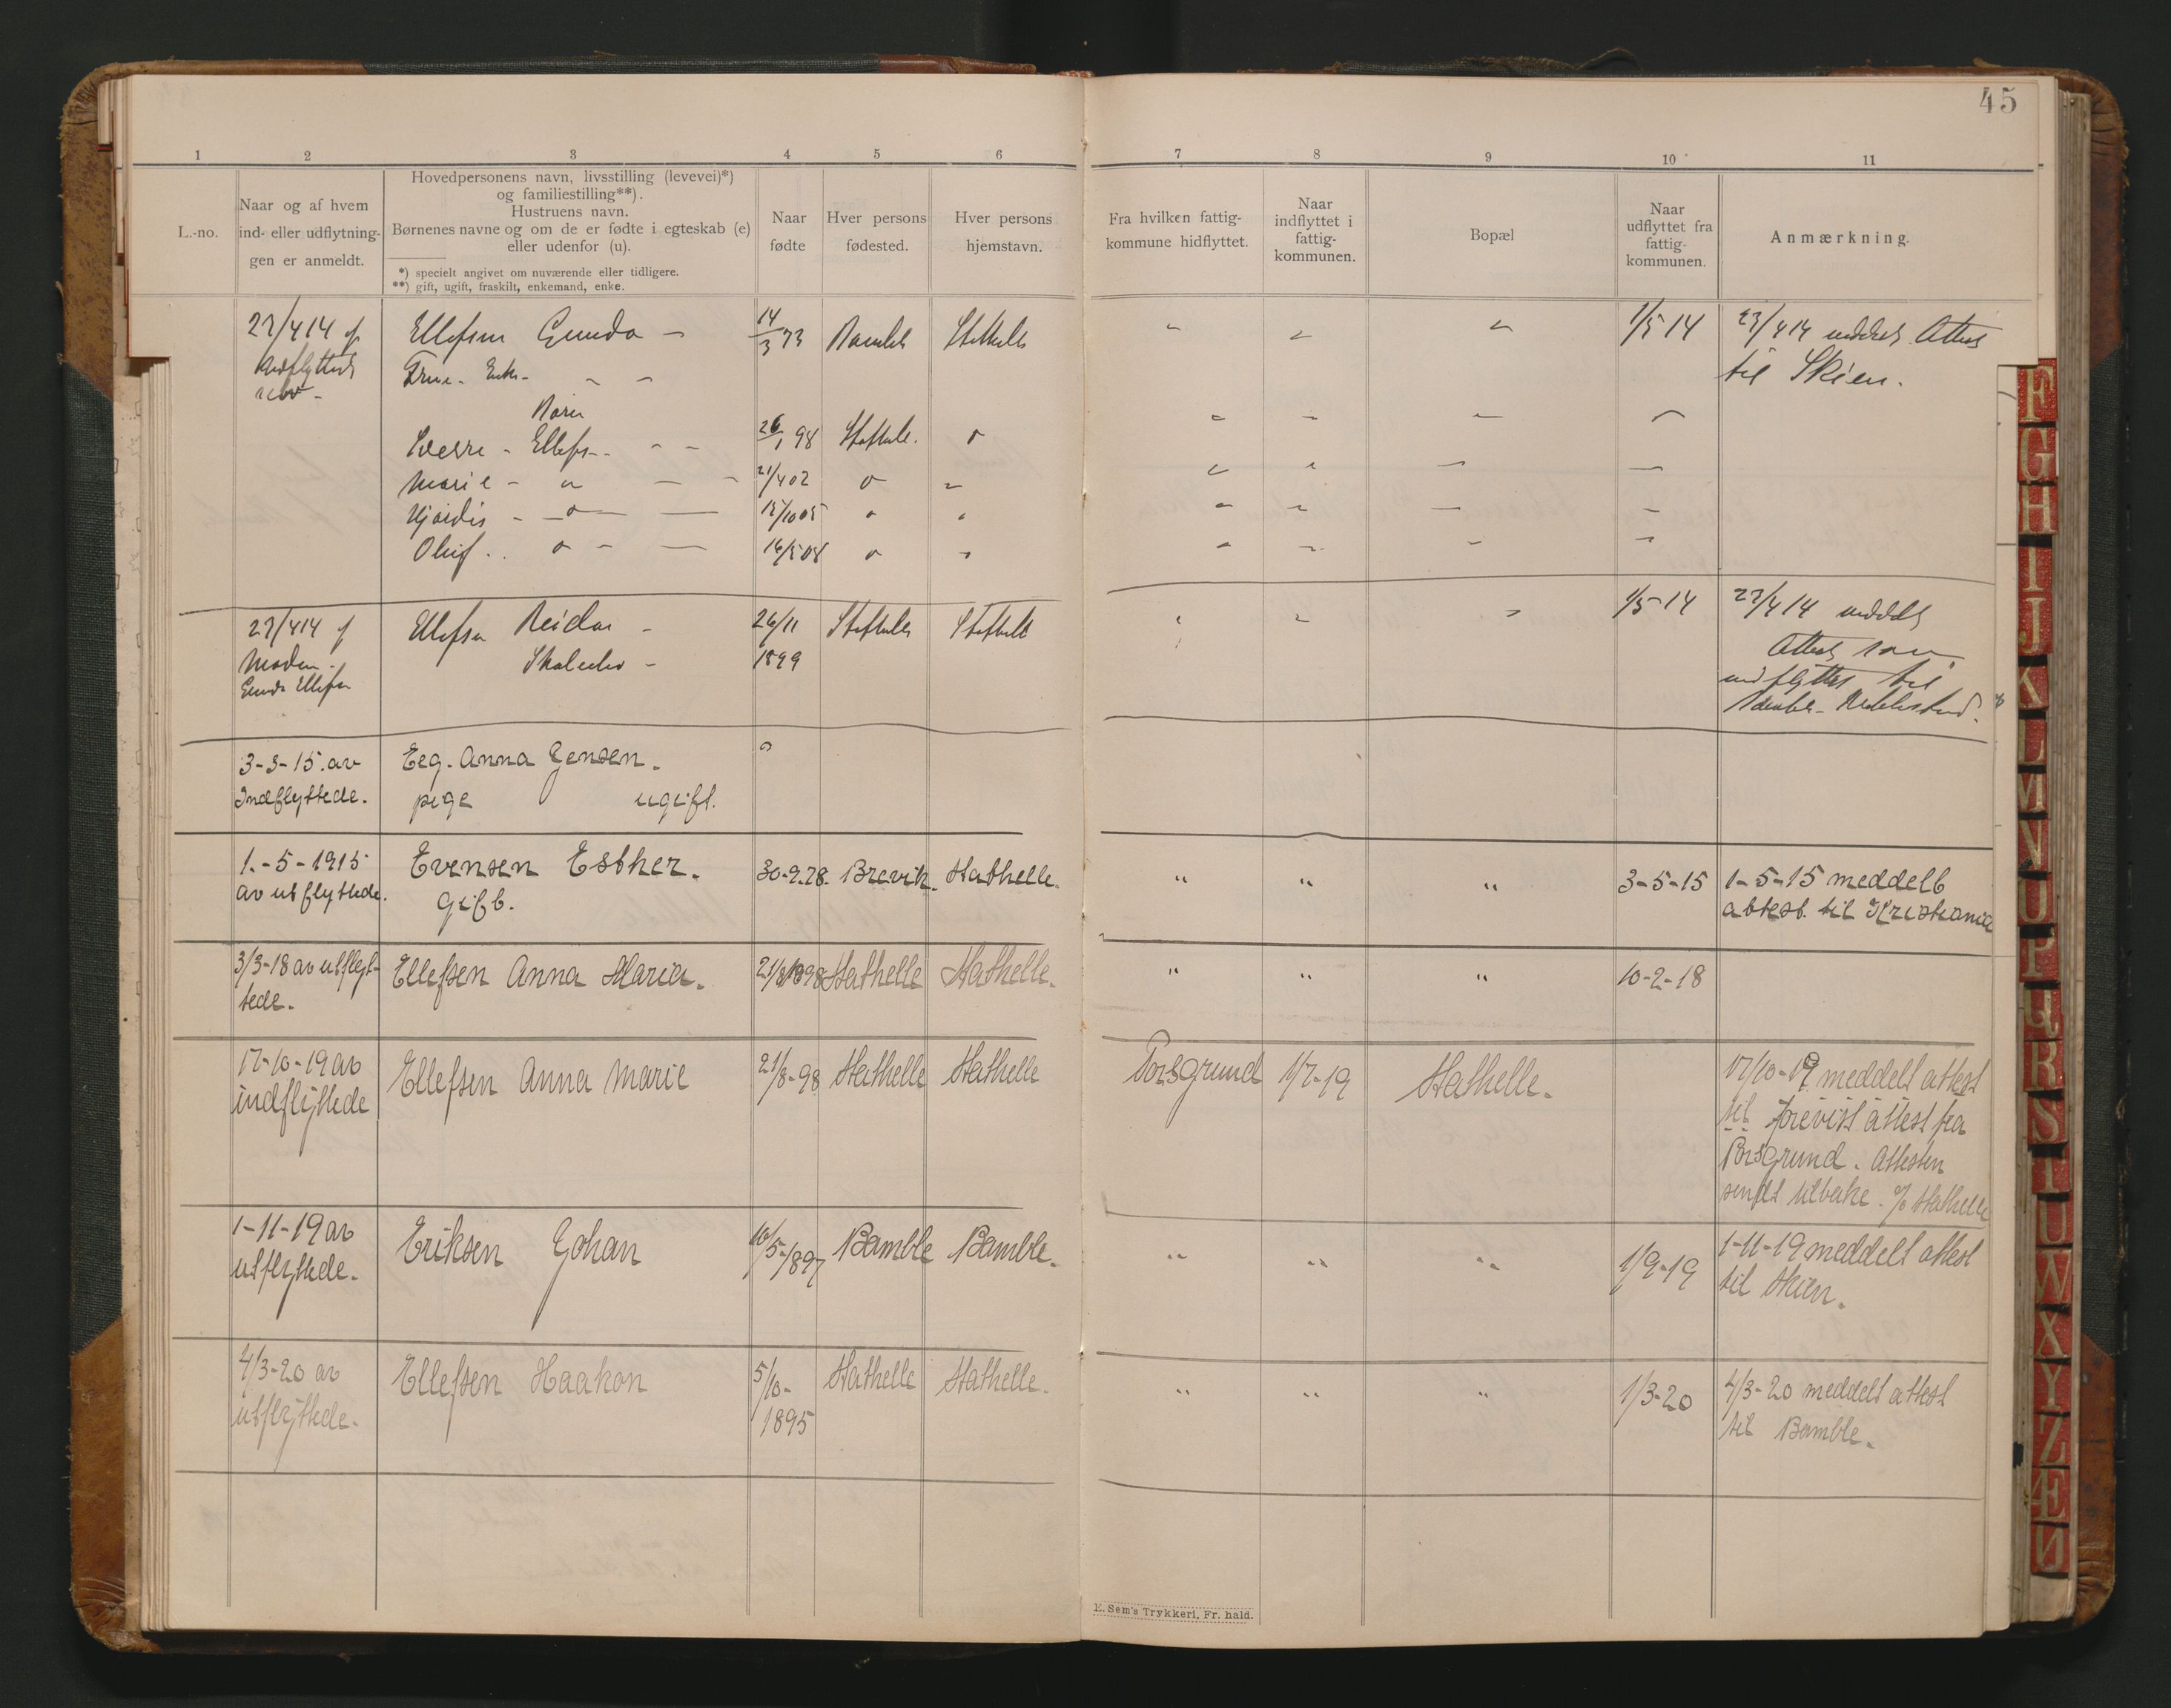 45
1 2 3 4 5 6 7 8 9 10 11
L.-no.
Naar og af hvem
ind- eller udflytnin-
gen er anmeldt.
Hovedpersonens navn, livsstilling (levevei)*)
og familiestilling**).
Hustruens navn.
Børnenes navne og om de er fødte i egteskab (e)
eller udenfor (u).
*) specielt angivet om nuværende eller tidligere.
**) gift, ugift, fraskilt, enkemand, enke.
Naar
fødte
Hver persons
fødested.
Hver persons
hjemstavn.
Fra hvilken fattig-
kommune hidflyttet.
Naar
indflyttet i
fattig-
kommunen.
Bopæl
Naar
udflyttet fra
fattig-
kommunen.
Anmærkning.
Ellefsen Gunda - 14/3 73 Bamble Stathelle " " " 1/5 14
Frue - Enke -
til Skien.
Børn
Sverre - Ellefs - - 26/1 98 Stathelle.
Marie - " - - 21/4 02
Hjørdis - - 15/10 05
Oluf - - 16/5 08
27/4 14 af
Moderen
Gunda Ellefsen
Ellefsen Reidar - 26/11 Stathelle Stathelle " " " 1/5-14 27/4 14 meddelt
1899
Attest som
udflyttet til
3-3-15. av
Indflyttede.
Eeg. Anna Jensen.
pige ugift.
1.-5-1915
av utflyttede.
Evensen Esther. 30-9.78. Brevik. Stathelle. " " " 3-5-15 1-5-15 meddelt
gift.
attest. til Kristiania
3/3-18 av utflyt-
tede.
Ellefsen Anna Maria. 21/8 1898 Stathelle Stathelle. " " " 10-2-18
17-10-19 av
indflyttede
Ellefsen Anna Marie 21/8-98 Stathelle Stathelle Porsgrund 1/7-19 Stathelle.
17/10-19 meddelt attest
til forevist attest fra
Porsgrund. Attesten
sendt tilbake. % Stathelle
1-11-19 av
utflyttede.
Eriksen Johan 16/5-1897 Bamble Bamble. " " " 1/9-19
1-11-19 meddelt attest
til Skien.
4/3-20 av
utflyttede.
Ellefsen Haakon 5/10-
1895
Stathelle Stathelle. " " " 1/3-20
4/3-20 meddelt attest
til Bamble.
E. Sem's Trykkeri, Fr. hald.
F
G
H
I
J
K
L
M
N
O
P
Q
R
S
T
U
W
X
Y
Z
Æ